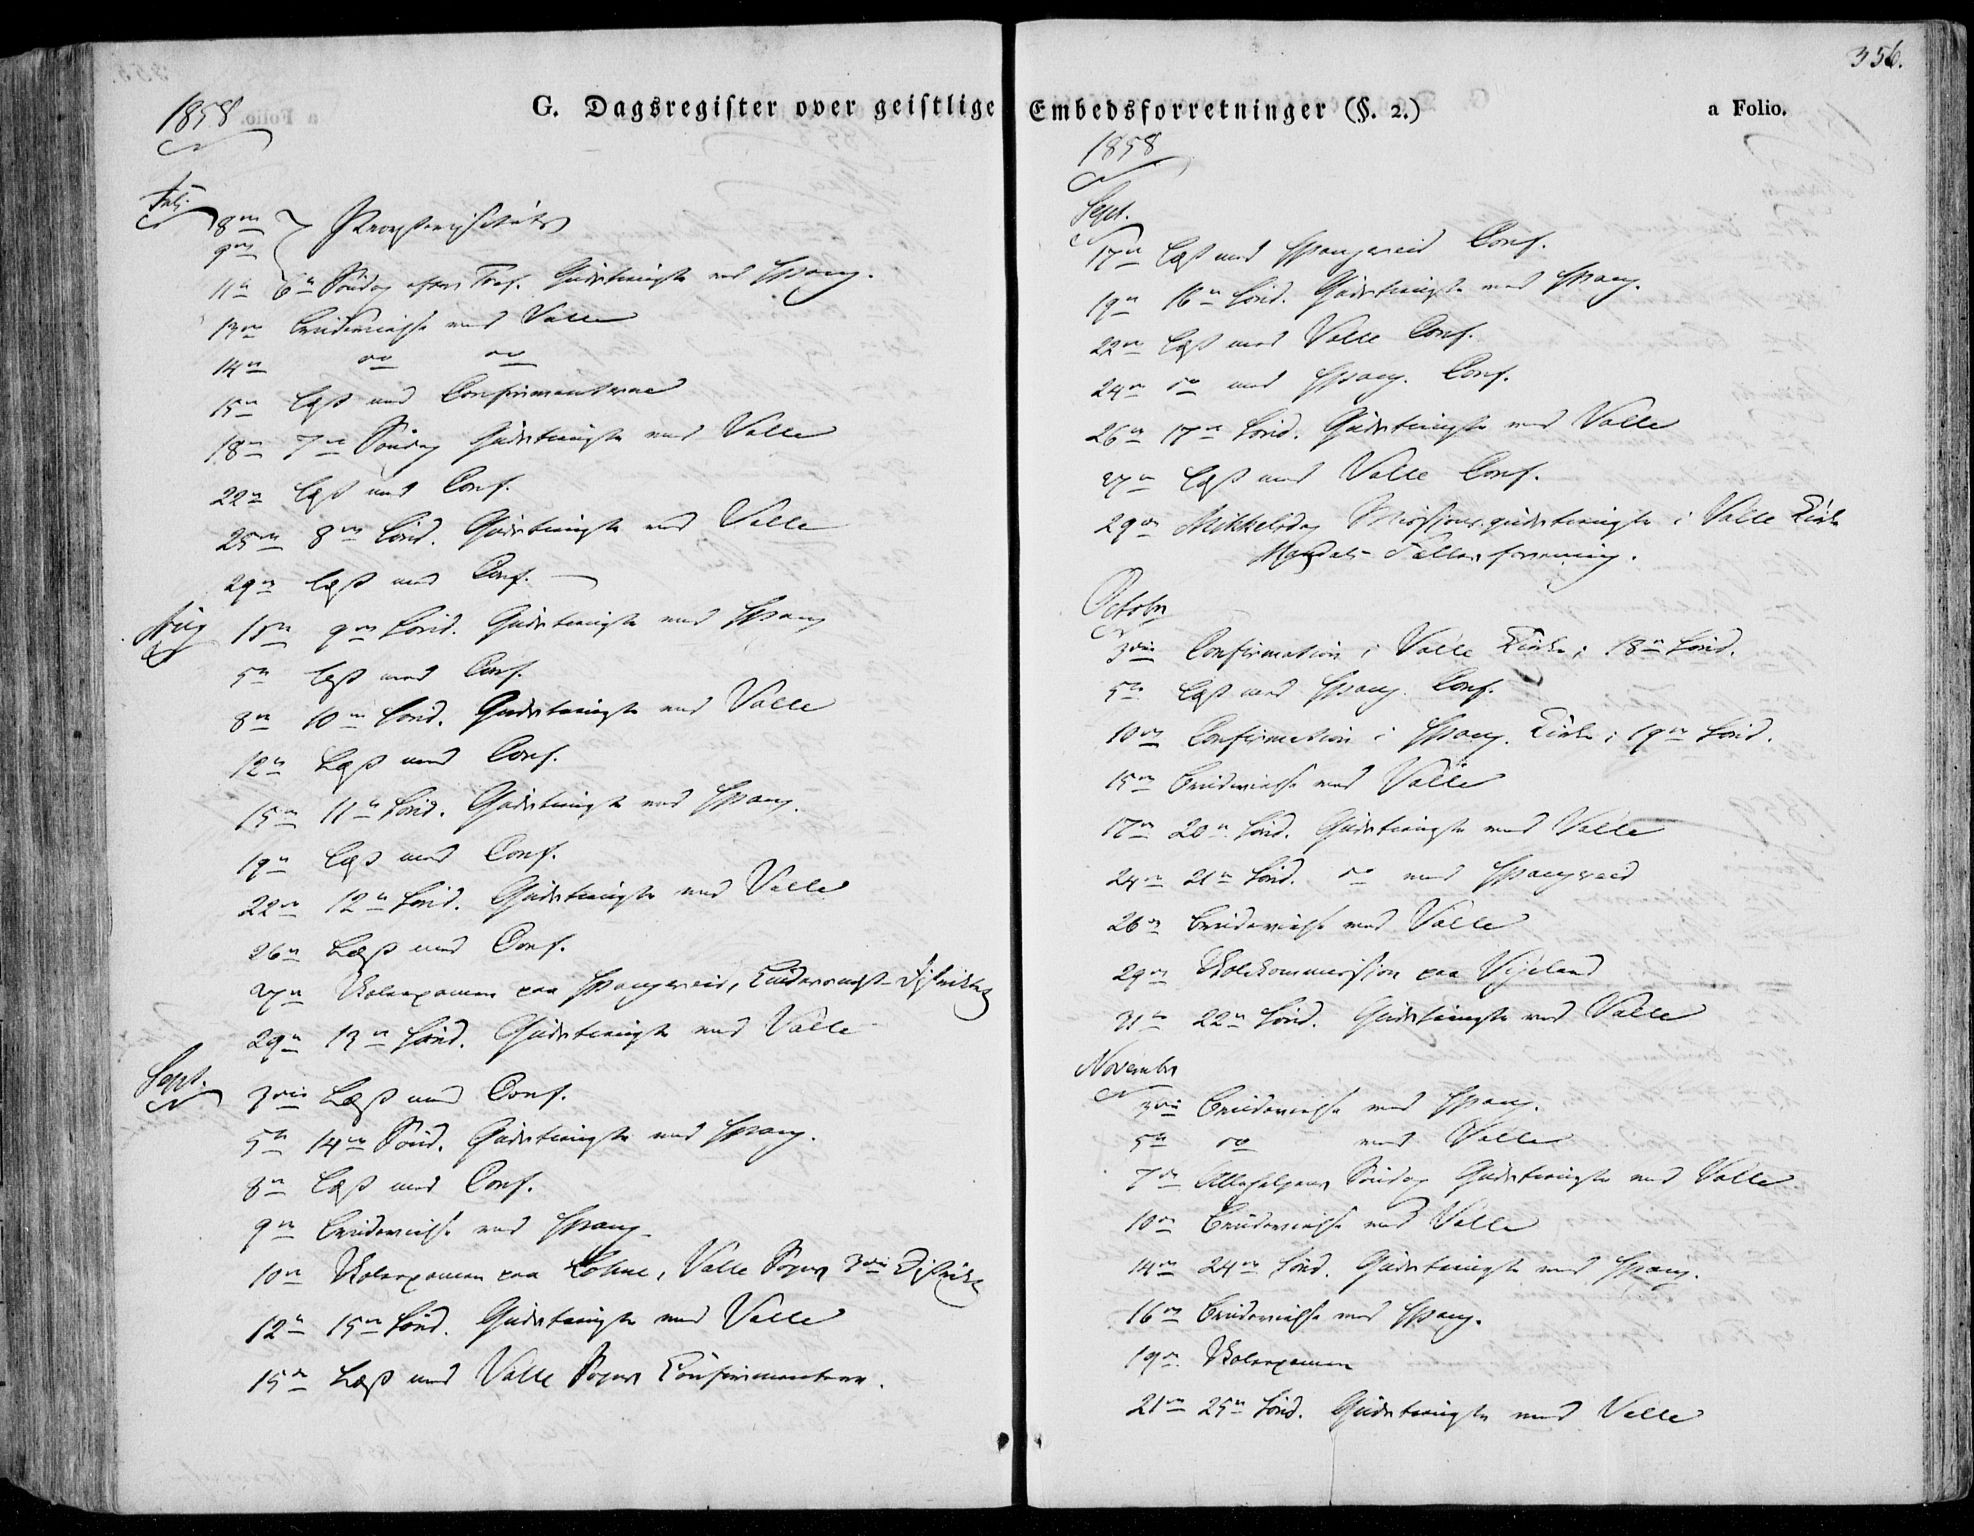 356.
G. Dagsregister over geistlige Embedsforretninger (§. 2.)
a Folio.
1858
Juli
8de
9de } Provstevisitats
11te 6te Søndag efter Tref. Gudstieneste ved Spang.
13de Brudevielse ved Valle
14de do do
15de Læst med Confirmanterne
18de 7de Søndag Gudstieneste ved Valle
22de Læst med Conf.
25de 8de Sønd. Gudstieneste ved Valle
29de Læst med Conf.
Aug 1ste 9de Sønd. Gudstieneste ved Spang
5te Læst med Conf.
8de 10de Sønd. Gudstieneste ved Valle
12te Læst med Conf.
15de 11te Sønd. Gudstieneste ved Spang.
19de Læst med Conf.
22de 12te Sønd. Gudstieneste ved Valle
26de Læst med Conf.
27de Skoleexamen paa Spangereid,
29de 13de Sønd. Gudstieneste ved Valle
Sept. 3die Læst med Conf.
5te 14de Sønd. Gudstieneste ved Spang.
8de Læst med Conf.
9de Brudevielse ved Spang.
10de Skoleexamen paa Lohne, Valle Sogns 3die Distrikt
12te 15de Sønd. Gudstieneste ved Valle
15de Læst med Valle Sogns Confirmanterne.
1858
Sept.
17de Læst med Spangereid Conf.
19de 16de Sønd. Gudstieneste ved Spang.
22de Læst med Valle Conf.
24de do med Spang. Conf.
26de 17de Sønd. Gudstieneste ved Valle
27de Læst med Valle Conf.
29de Mikkelsdag Missionsgudstieneste i Valle Kirke
Mandals Fællesforening.
October
3die Confirmation i Valle Kirke; 18de Sønd.
5te Læst med Spang. Conf.
10de Confirmation i Spang. Kirke; 19de Sønd.
15de Brudevielse ved Valle
17de 20de Sønd. Gudstieneste ved Valle
24de 21de Sønd. do ved Spangereid
26de Brudevielse ved Valle
29de Skolekommission paa Vigeland
31te 22de Sønd. Gudstieneste ved Valle
November
3die Brudevielse ved Spang.
5te do ved Valle
7de Allehelgens Søndag Gudstieneste ved Valle
10de Brudevielse ved Valle
14de 24de Sønd. Gudstieneste ved Spang.
16de Brudevielse ved Spang.
19de Skoleexamen
21de 25de Sønd. Gudstieneste ved Valle